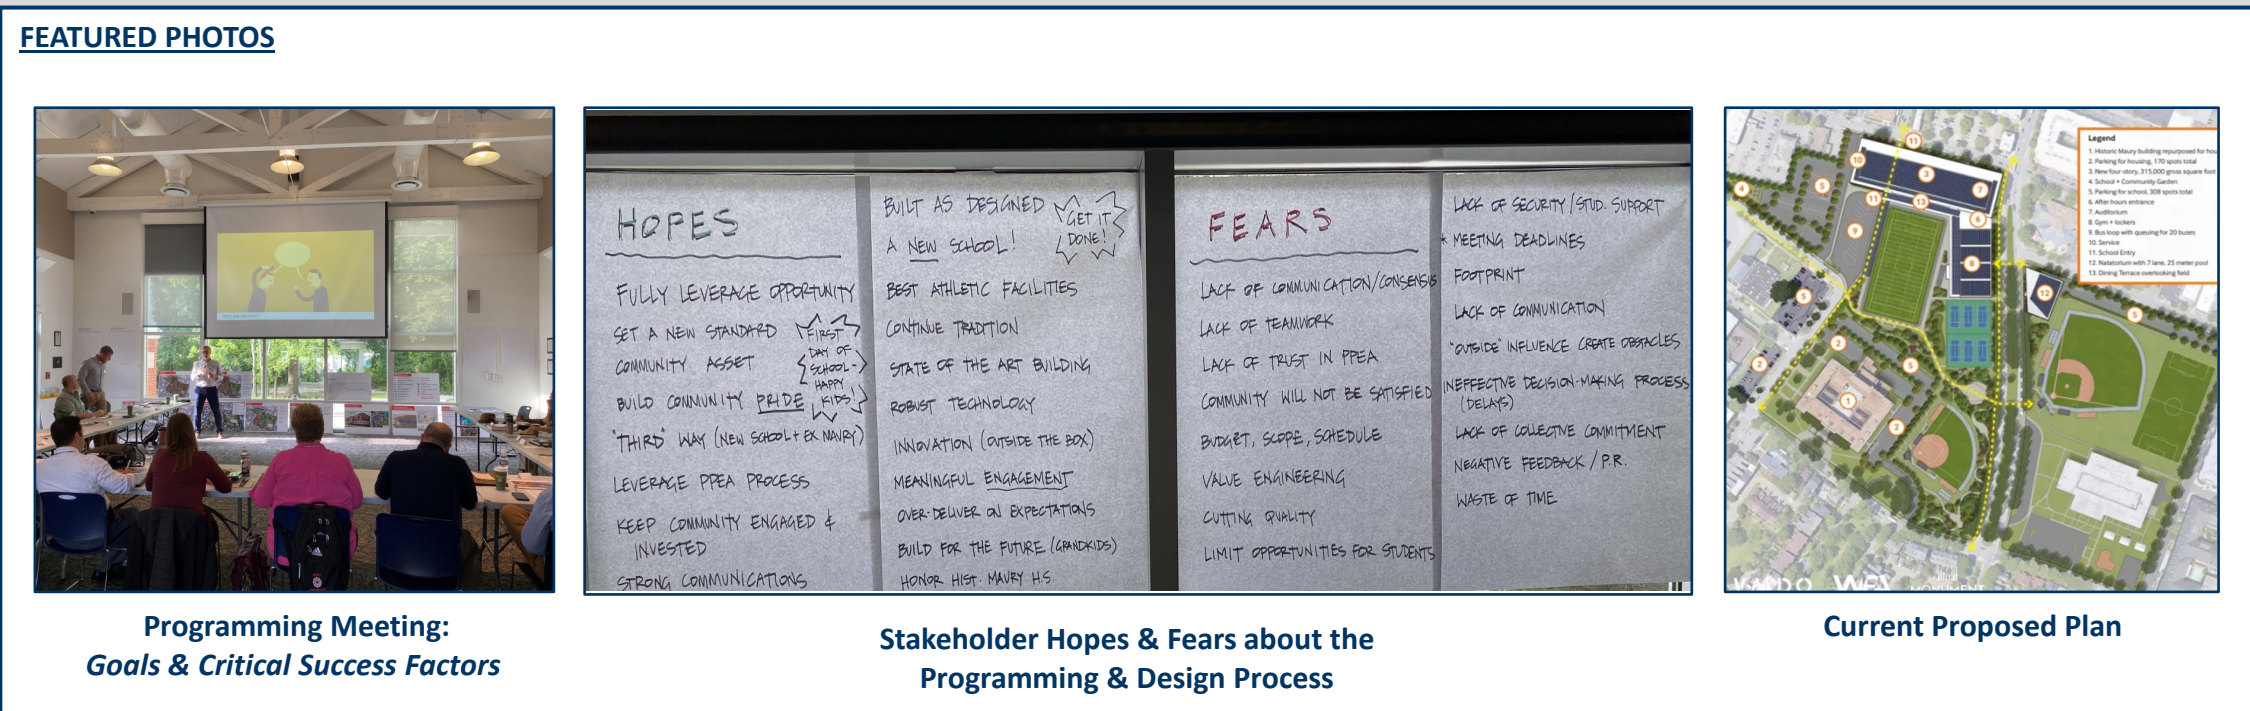 FEATURED PHOTOS
HOPES
FULLY LEVERAGE OPPORTUNITY
SET A NEW STANDARD
COMMUNITY ASSET
BUILD COMMUNITY PRIDE
FIRST
DAY OF
SCHOOL-
HAPPY
KIDS!
"THIRD" WAY (NEW SCHOOL + EX MAURY)
LEVERAGE PPEA PROCESS
KEEP COMMUNITY ENGAGED &
INVESTED
STRONG COMMUNICATIONS
BUILT AS DESIGNED
GET IT
DONE!
A NEW SCHOOL!
BEST ATHLETIC FACILITIES
CONTINUE TRADITION
STATE OF THE ART BUILDING
ROBUST TECHNOLOGY
INNOVATION (OUTSIDE THE BOX)
MEANINGFUL ENGAGEMENT
OVER-DELIVER ON EXPECTATIONS
BUILD FOR THE FUTURE (GRANDKIDS)
HONOR HIST. MAURY H.S.
FEARS
LACK OF COMMUNICATION/CONSENSUS
LACK OF TEAMWORK
LACK OF TRUST IN PPEA
COMMUNITY WILL NOT BE SATISFIED
BUDGET, SCOPE, SCHEDULE
VALUE ENGINEERING
CUTTING QUALITY
LIMIT OPPORTUNITIES FOR STUDENTS
LACK OF SECURITY/STUD. SUPPORT
* MEETING DEADLINES
FOOTPRINT
LACK OF COMMUNICATION
"OUTSIDE" INFLUENCE CREATE OBSTACLES
INEFFECTIVE DECISION-MAKING PROCESS
(DELAYS)
LACK OF COLLECTIVE COMMITMENT
NEGATIVE FEEDBACK/P.R.
WASTE OF TIME
Legend
1. Historic Maury building repurposed for hou
2. Parking for housing, 170 spots total
3. New four-story, 315,000 gross square foot
4. School + Community Garden
5. Parking for school, 308 spots total
6. After hours entrance
7. Auditorium
8. Gym + lockers
9. Bus loop with queuing for 20 buses
10. Service
11. School Entry
12. Natatorium with 7 lane, 25 meter pool
13. Dining Terrace overlooking field
11
10
3
5
7
4
11
13
6
9
8
12
5
5
2
2
5
1
2
MONUMENT
Programming Meeting:
Goals & Critical Success Factors
Stakeholder Hopes & Fears about the
Programming & Design Process
Current Proposed Plan